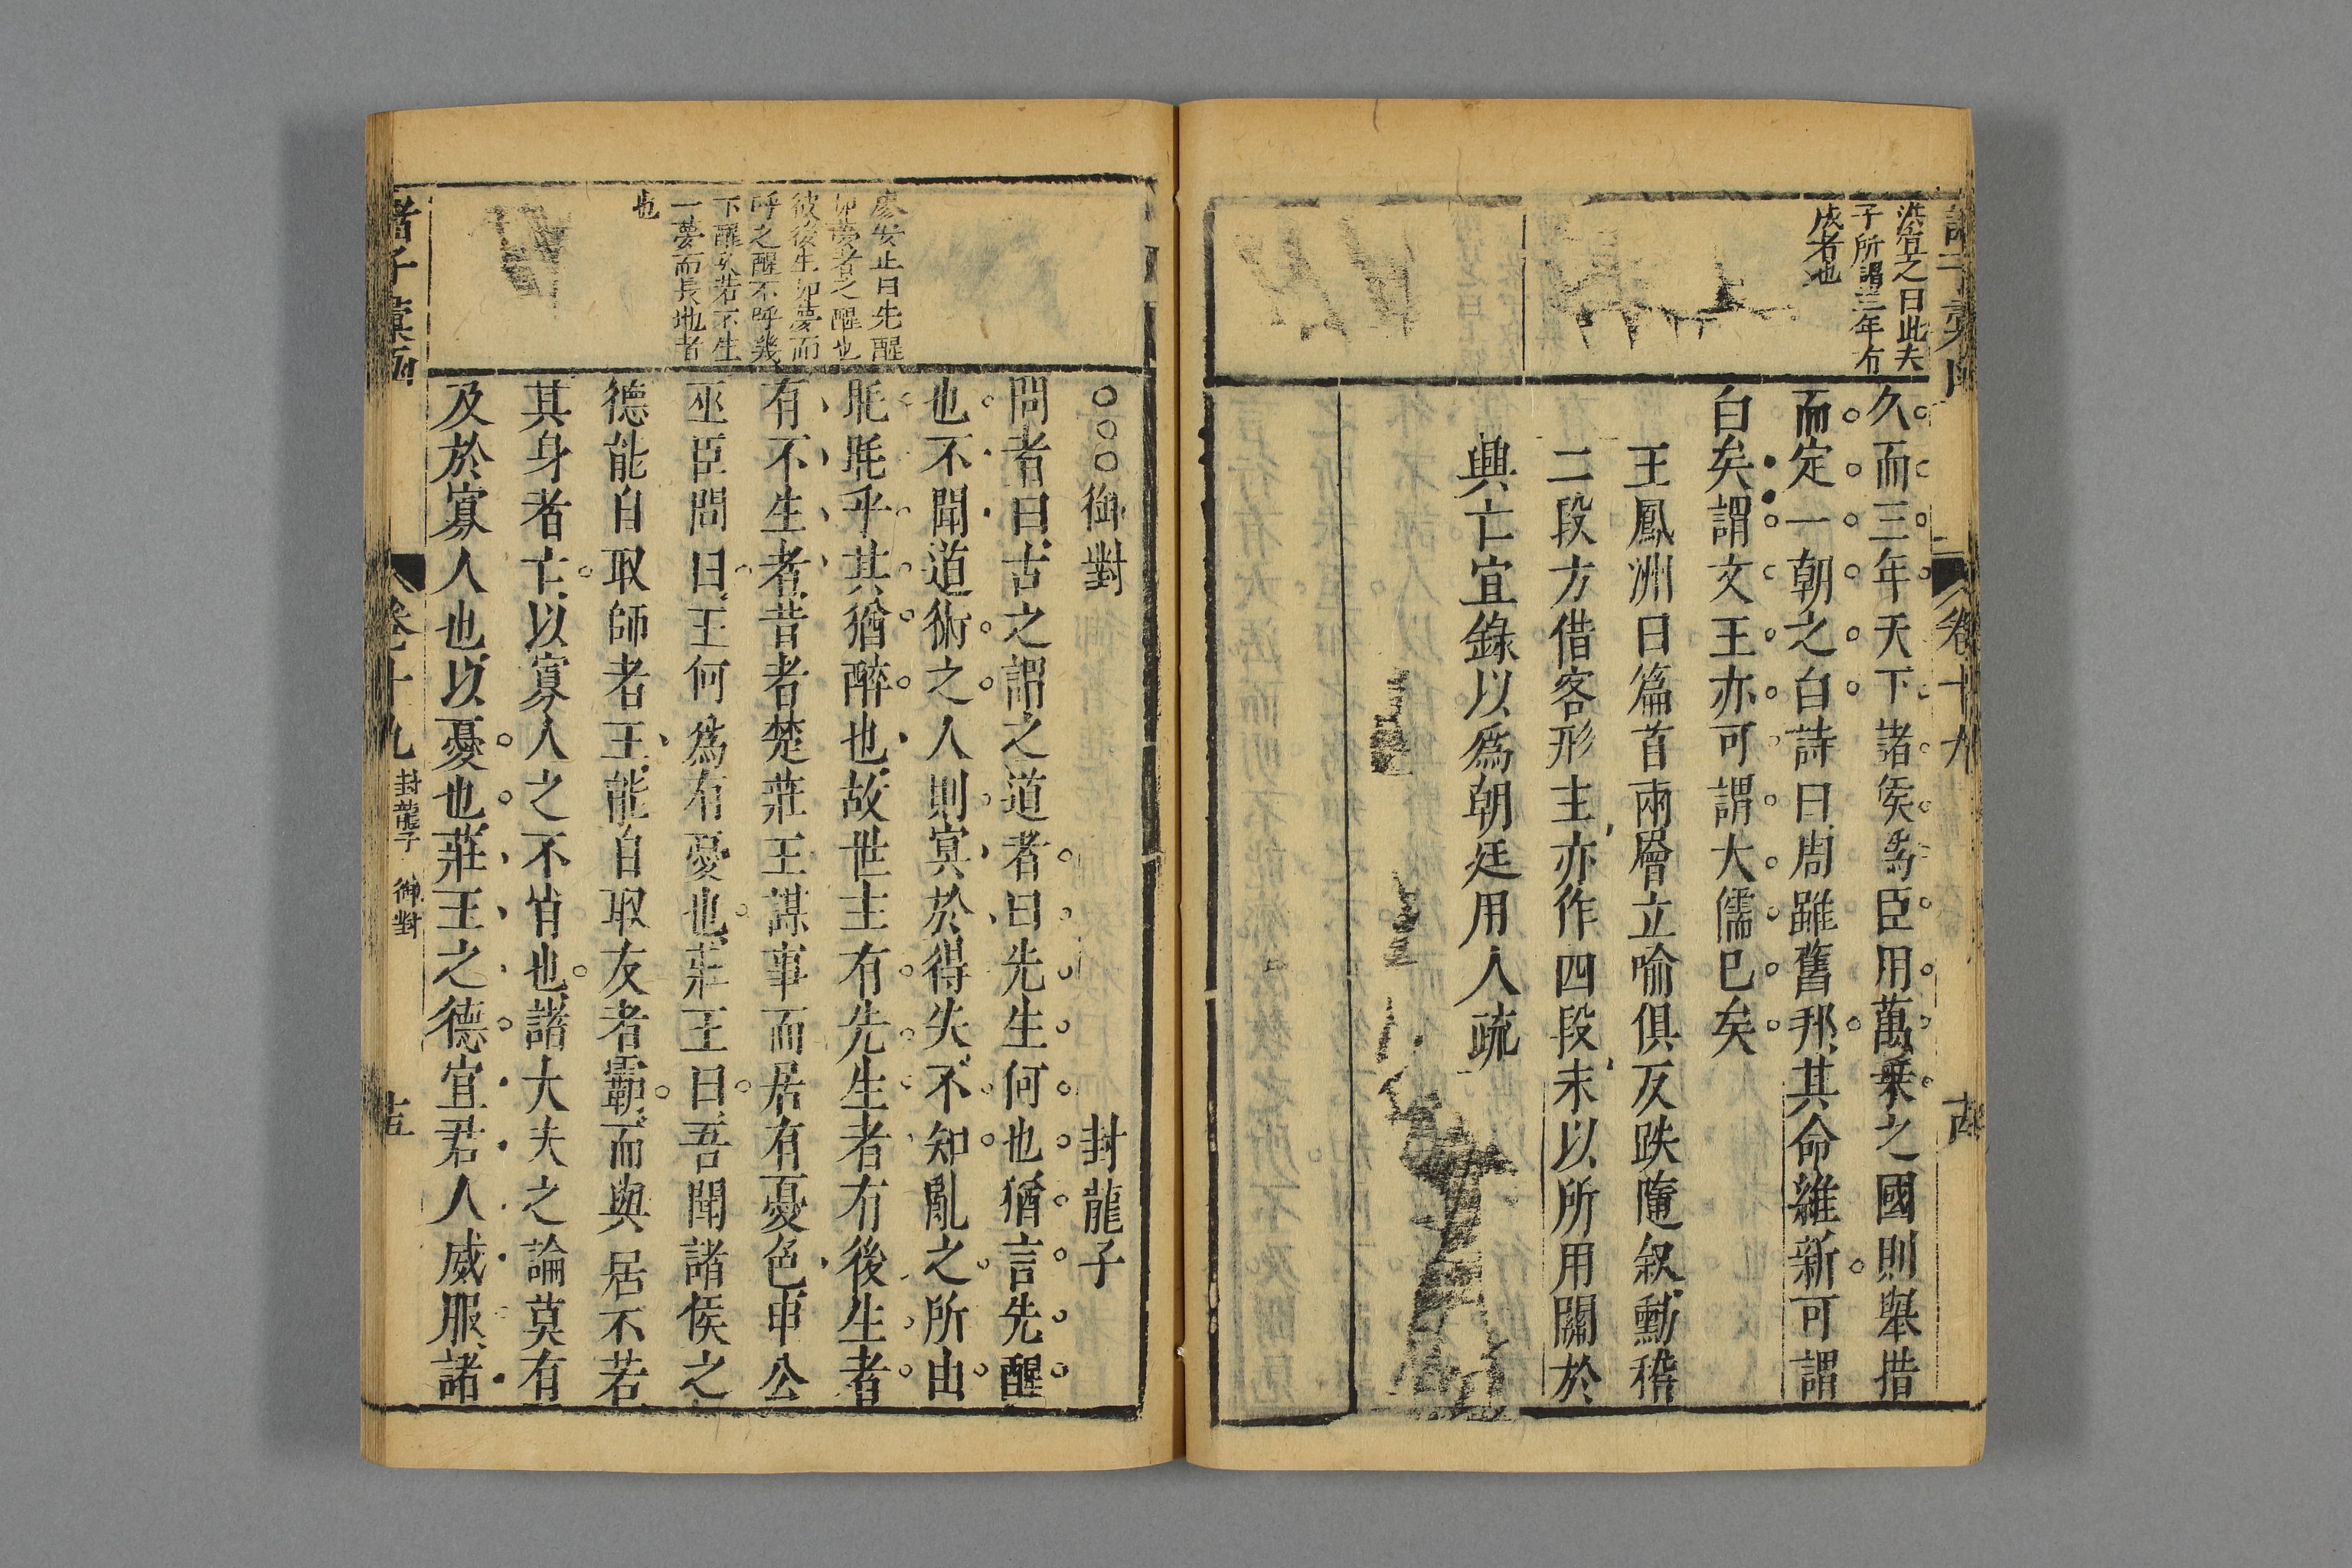 洪宜之曰此夫
子所謂三年有
成者也
久而三年天下諸侯爲臣用萬乗之國則舉措
而定一朝之白詩曰周雖舊邦其命維新可謂
白矣謂文王亦可謂大儒巳矣
王鳳洲曰篇首兩層立喻俱反跌隨叙勳稽
二段方借客形主亦作四段末以所用關於
興亡宜錄以爲朝廷用人疏
卷十九
廖安止曰先醒
卽夢者之醒也
彼後生如夢而
呼之醒不呼幾
下醒矣若不生
一夢而長地者
也
○○○御對
封龍子
問者曰古之謂之道者曰先生何也猶言先醒
也不聞道術之人則冥於得失不知亂之所由
毦毦乎其猶醉也故世主有先生者有後生者
有不生者昔者楚莊王謀事而居有憂色申公
巫臣問曰王何爲有憂也莊王曰吾聞諸侯之
德能自取師者王能自取友者霸而與居不若
其身者亡以寡人之不肖也諸大夫之論莫有
及於寡人也以憂也莊王之德宜君人威服諸
卷十九
封龍子
御對